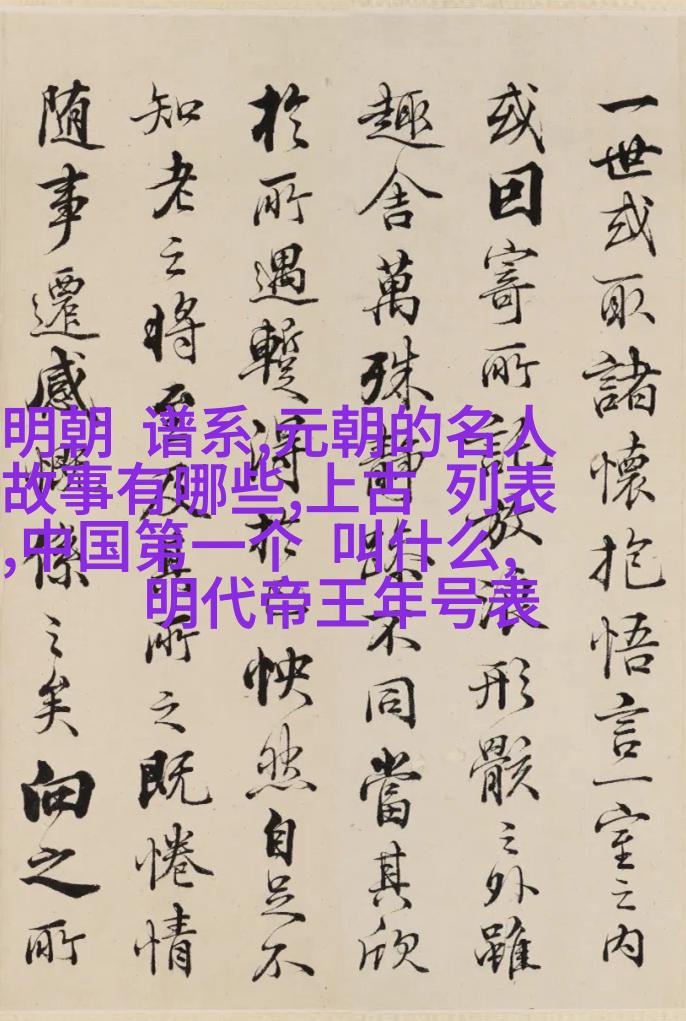 一世或取諸懷抱悟言一室之内
或因寄所託放浪形骸之外雖
趣舍萬殊靜躁不同當其欣
於所遇暫得於己怏然自足不
知老之将至及其所之既惓情
随事遷感慨係之矣向之所
明朝 谱系,元朝的名人
故事有哪些,上古 列表
,中国第一个 叫什么,
明代帝王年号表